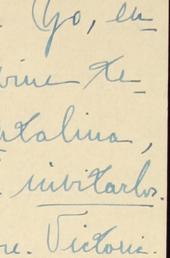 Yo, en-
te-
talina,
invitarlos.
re. Victoria.